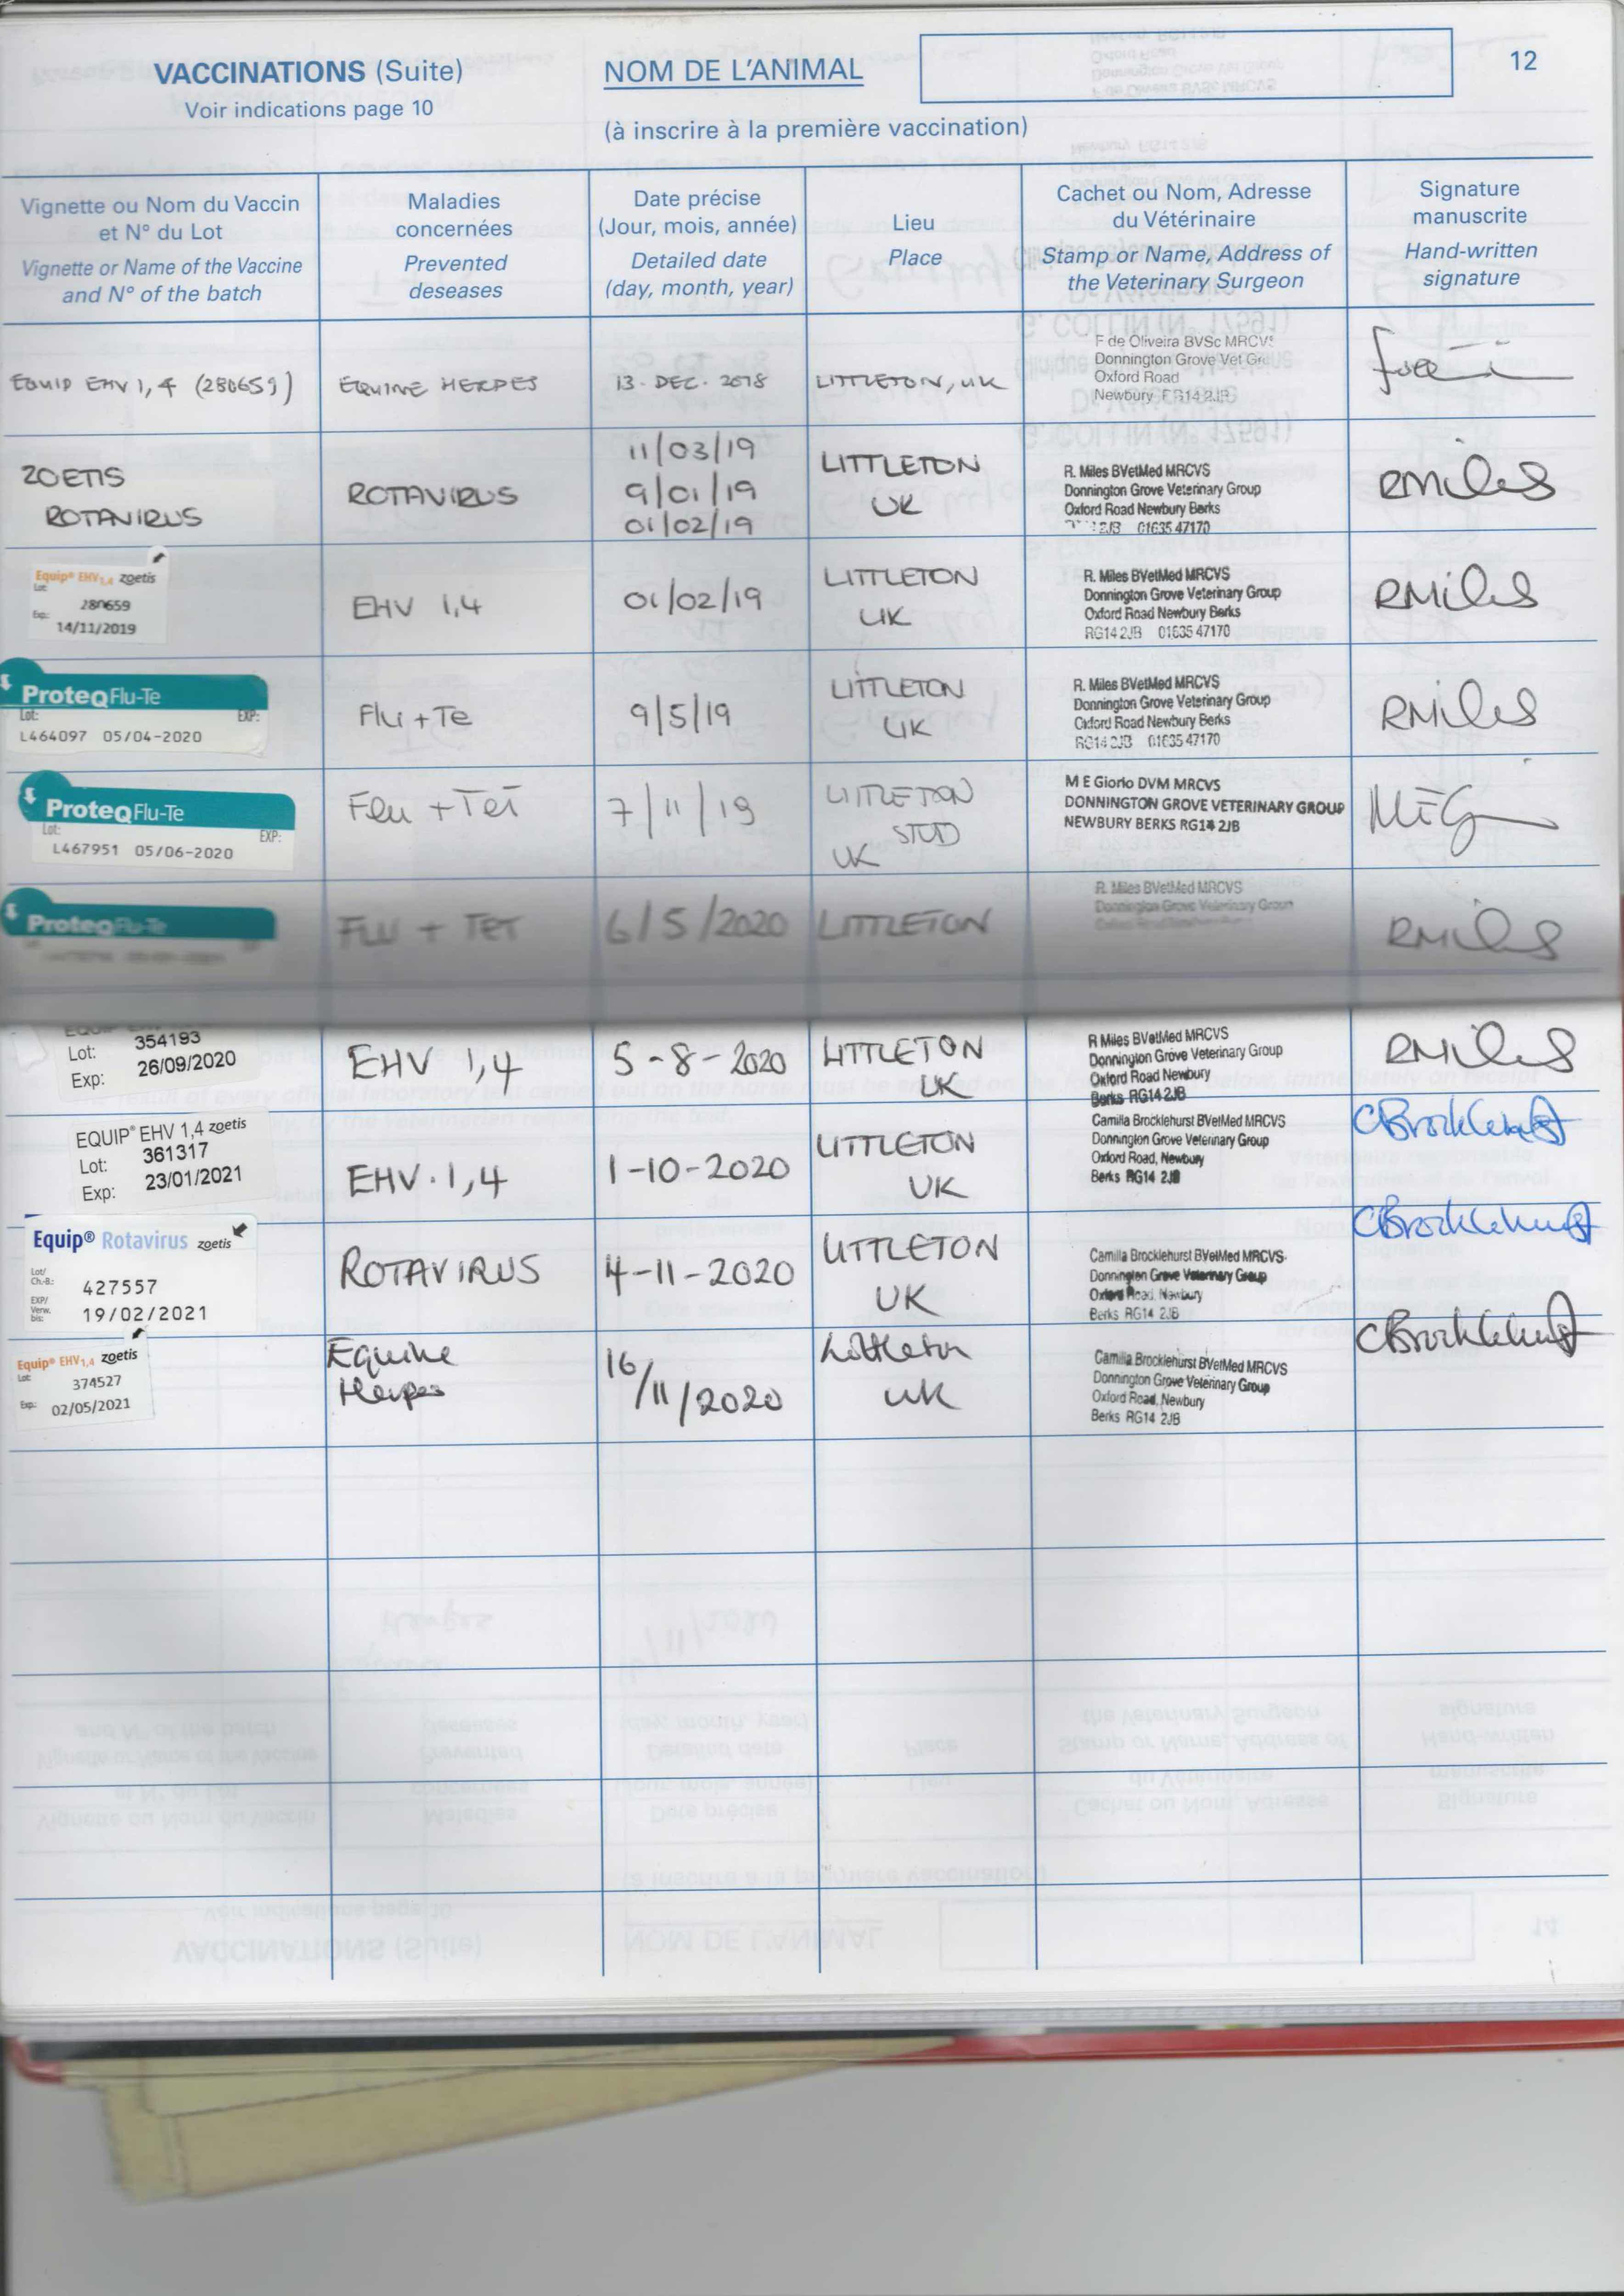 VACCINATIONS (Suite)
Voir indications page 10
NOM DE L'ANIMAL
(à inscrire à la première vaccination)
12
Vignette ou Nom du Vaccin
et N° du Lot
Vignette or Name of the Vaccine
and N° of the batch
Maladies
concernées
Prevented
deseases
Date précise
(Jour, mois, année)
Detailed date
(day, month, year)
Lieu
Place
Cachet ou Nom, Adresse
du Vétérinaire
Stamp or Name, Address of
the Veterinary Surgeon
Signature
manuscrite
Hand-written
signature
EQUIP EHV 1,4 (280659)
EQUINE HERPES
13. DEC. 2018
LITTLETON, UK
F de Oliveira BVSc MRCVS
Donnington Grove Vet Gr
Oxford Road
Newbury RG14 2JB
ZOETIS
ROTAVIRUS
ROTAVIRUS
11/03/19
9/01/19
01/02/19
LITTLETON
UK
R. Miles BVetMed MRCVS
Donnington Grove Veterinary Group
Oxford Road Newbury Berks
2JB 01635 47170
RMiles
Equip® EHV1,4 zoetis
Lot:
280659
Exp:
14/11/2019
EHV 1,4
01/02/19
LITTLETON
UK
R. Miles BVetMed MRCVS
Donnington Grove Veterinary Group
Oxford Road Newbury Berks
RG14 2JB 01635 47170
RMiles
ProteqFlu-Te
Lot: EXP:
L464097 05/04-2020
Flu + Te
9/5/19
LITTLETON
UK
R. Miles BVetMed MRCVS
Donnington Grove Veterinary Group
Oxford Road Newbury Berks
RG14 2JB 01635 47170
RMiles
ProteqFlu-Te
Lot: EXP:
L467951 05/06-2020
Flu + Tet
7/11/19
LITTLETON
STUD
UK
M E Giorio DVM MRCVS
DONNINGTON GROVE VETERINARY GROUP
NEWBURY BERKS RG14 2JB
MEG
ProteqFlu-Te
FLU + TET
6/5/2020
LITTLETON
R. Miles BVetMed MRCVS
Donnington Grove Veterinary Group
RMiles
Lot: 354193
Exp: 26/09/2020
EHV 1,4
5-8-2020
LITTLETON
UK
R Miles BVetMed MRCVS
Donnington Grove Veterinary Group
Oxford Road Newbury
Berks RG14 2JB
RMiles
EQUIP® EHV 1,4 zoetis
Lot: 361317
Exp: 23/01/2021
EHV.1,4
1-10-2020
LITTLETON
UK
Camilla Brocklehurst BVetMed MRCVS
Donnington Grove Veterinary Group
Oxford Road, Newbury
Berks RG14 2JB
CBrocklehurst
Equip® Rotavirus zoetis
Lot/
Ch.-B.: 427557
EXP/
Verw.
bis: 19/02/2021
ROTAVIRUS
4-11-2020
LITTLETON
UK
Camilla Brocklehurst BVetMed MRCVS
Donnington Grove Veterinary Group
Oxford Road, Newbury
Berks RG14 2JB
CBrocklehurst
Equip® EHV1,4 zoetis
Lot: 374527
Exp: 02/05/2021
Equine
Herpes
16/11/2020
Littleton
UK
Camilla Brocklehurst BVetMed MRCVS
Donnington Grove Veterinary Group
Oxford Road, Newbury
Berks RG14 2JB
CBrocklehurst